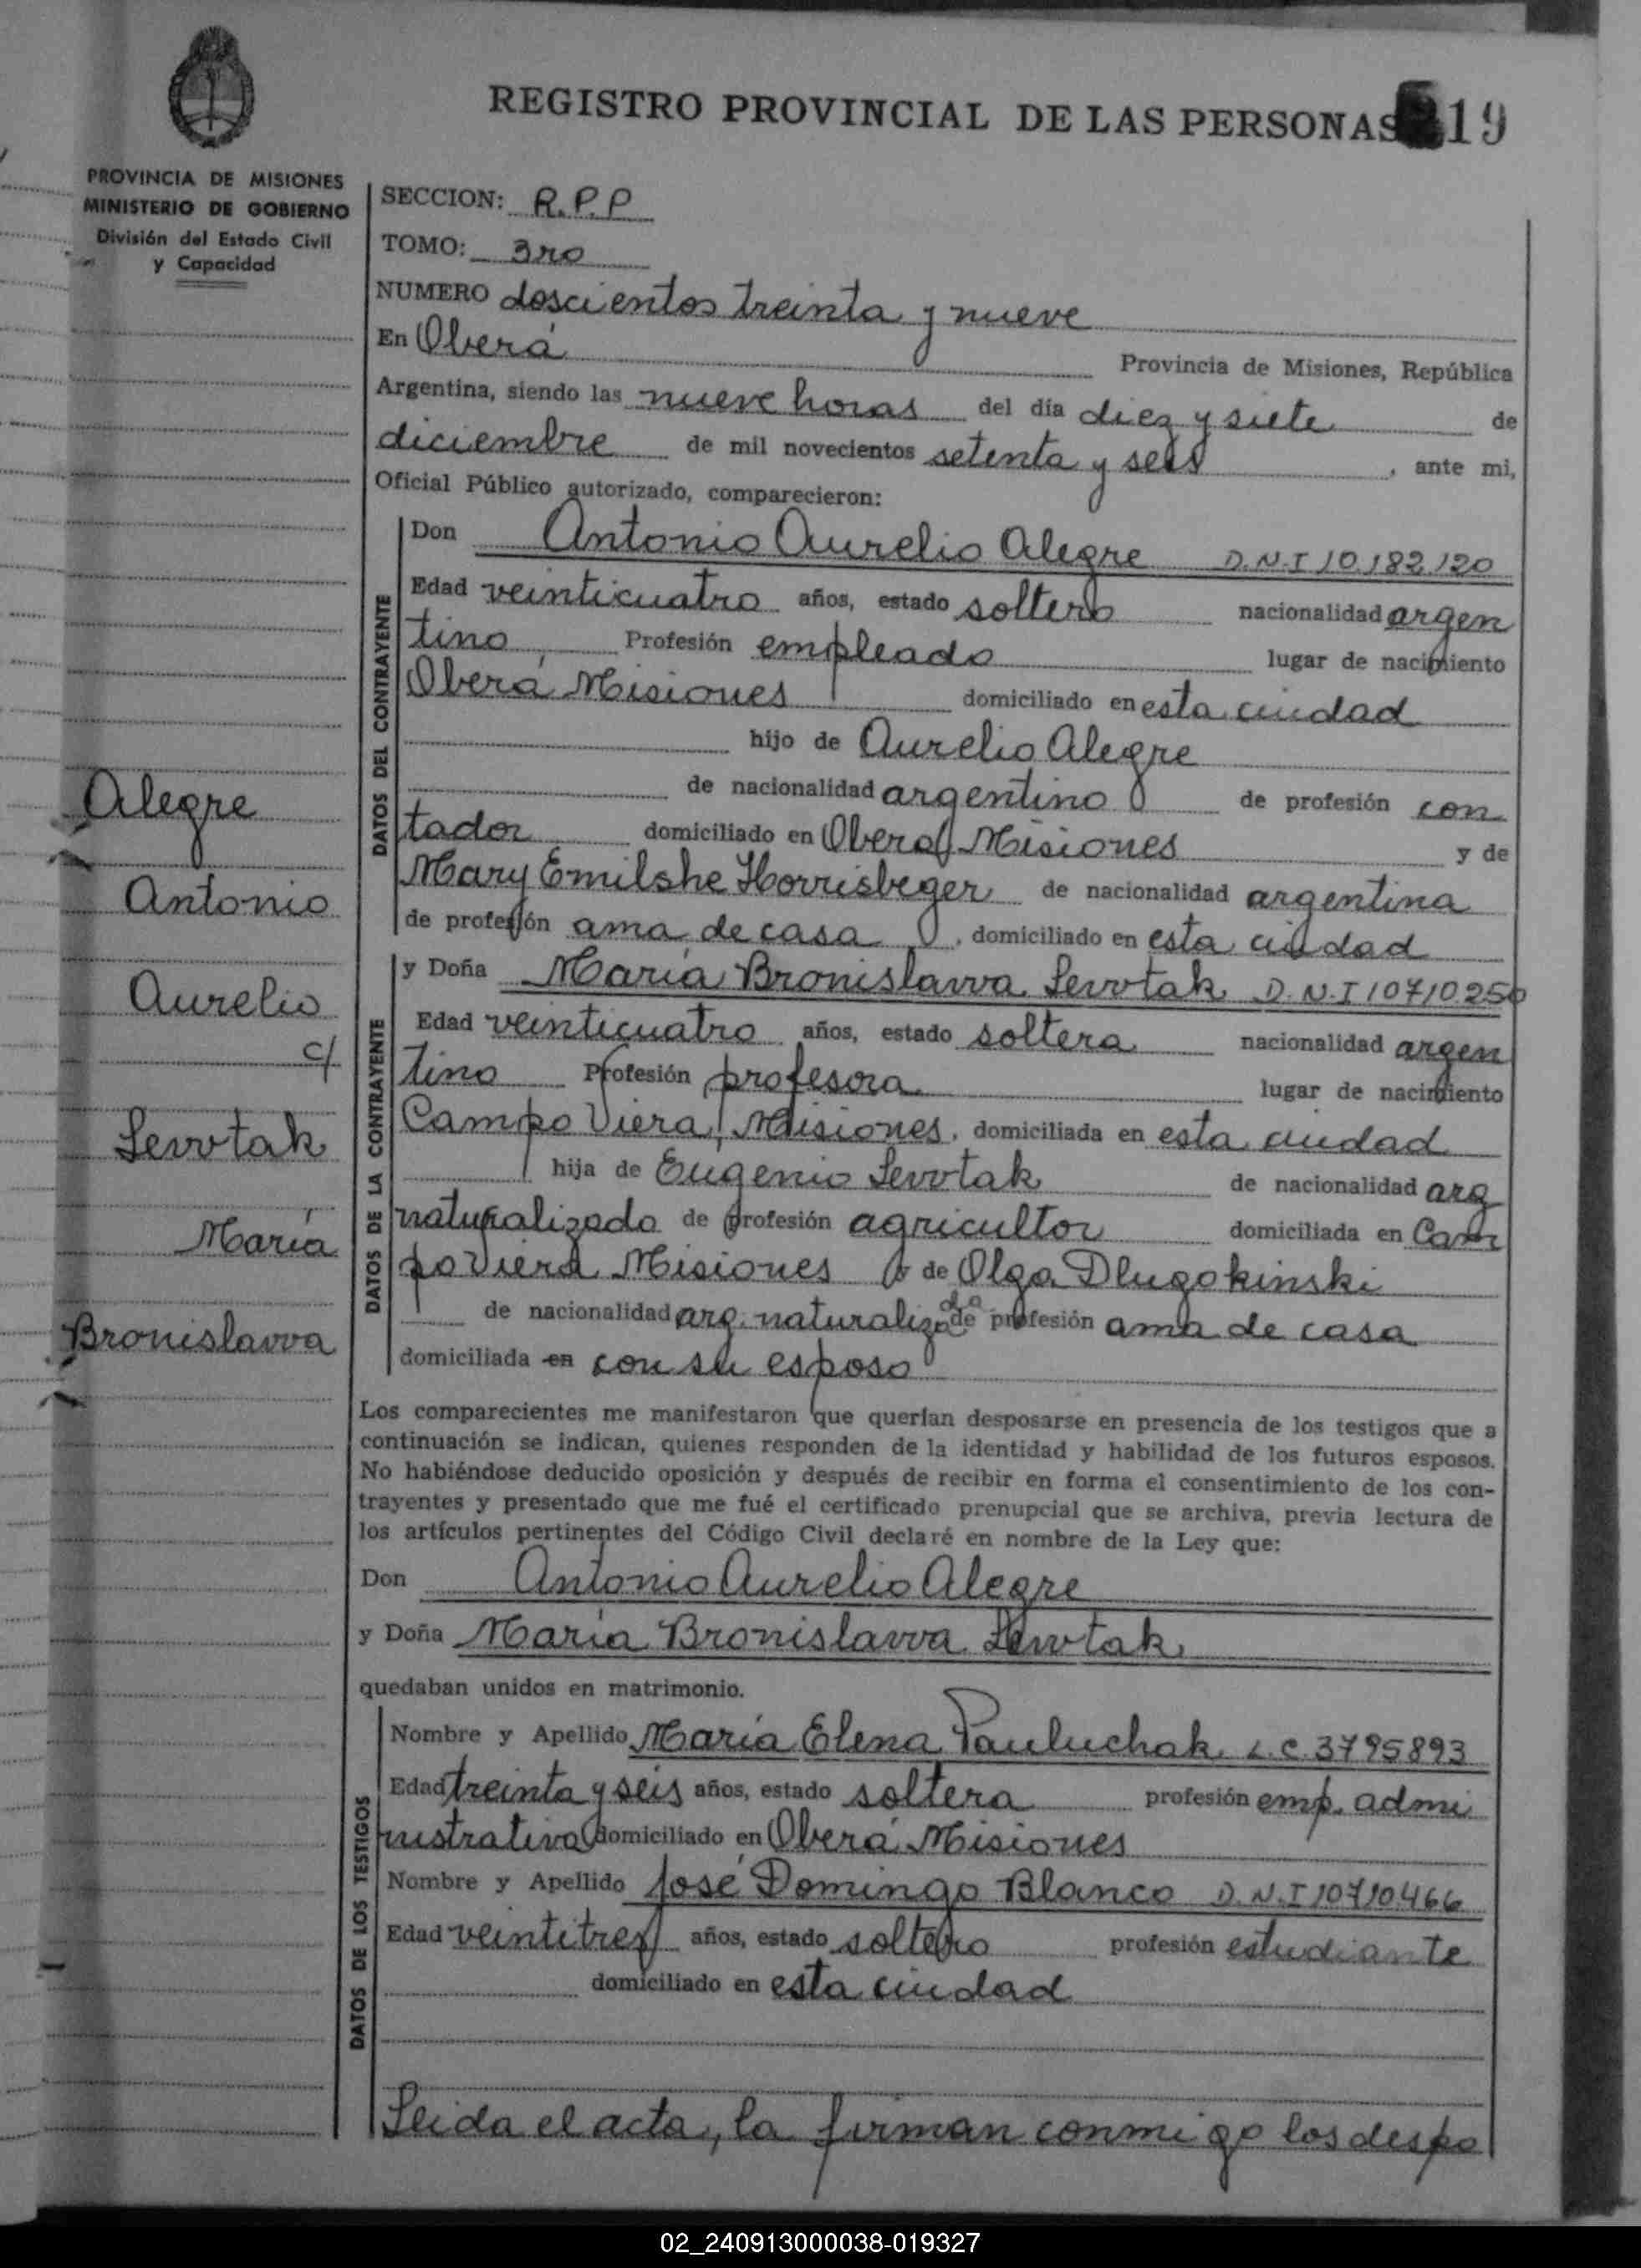 REGISTRO PROVINCIAL DE LAS PERSONAS 19
PROVINCIA DE MISIONES
MINISTERIO DE GOBIERNO
División del Estado Civil
y Capacidad
SECCION: R.P.P
TOMO: 3ro
NUMERO doscientos treinta y nueve
En Oberá Provincia de Misiones, República
Argentina, siendo las nueve horas del día diez y siete de
diciembre de mil novecientos setenta y seis, ante mi,
Oficial Público autorizado, comparecieron:
DATOS DEL CONTRAYENTE
Don Antonio Aurelio Alegre D.N.I 10.182.120
Edad veinticuatro años, estado soltero nacionalidad argen
tino Profesión empleado lugar de nacimiento
Oberá Misiones domiciliado en esta ciudad
hijo de Aurelio Alegre
de nacionalidad argentino de profesión con
tador domiciliado en Oberá Misiones y de
Mary Emilshe Horrisbeger de nacionalidad argentina
de profesión ama de casa, domiciliado en esta ciudad
DATOS DE LA CONTRAYENTE
y Doña María Bronislawa Sewtak D.N.I 10710.250
Edad veinticuatro años, estado soltera nacionalidad argen
tino Profesión profesora lugar de nacimiento
Campo Viera, Misiones, domiciliada en esta ciudad
hija de Eugenio Sewtak de nacionalidad arg
naturalizado de profesión agricultor domiciliada en Cam
po Viera Misiones y de Olga Dlugokinski
de nacionalidad arg. naturalizada de profesión ama de casa
domiciliada en con su esposo
Alegre
Antonio
Aurelio
c/
Sewtak
María
Bronislawa
Los comparecientes me manifestaron que querían desposarse en presencia de los testigos que a
continuación se indican, quienes responden de la identidad y habilidad de los futuros esposos.
No habiéndose deducido oposición y después de recibir en forma el consentimiento de los con-
trayentes y presentado que me fué el certificado prenupcial que se archiva, previa lectura de
los artículos pertinentes del Código Civil declaré en nombre de la Ley que:
Don Antonio Aurelio Alegre
y Doña María Bronislawa Sewtak
quedaban unidos en matrimonio.
DATOS DE LOS TESTIGOS
Nombre y Apellido María Elena Pauluchak L.C. 3795893
Edad treinta y seis años, estado soltera profesión emp. admi
nistrativa domiciliado en Oberá Misiones
Nombre y Apellido José Domingo Blanco D.N.I 10710.466
Edad veintitres años, estado soltero profesión estudiante
domiciliado en esta ciudad
Leida el acta, la firman conmigo los despo
02_240913000038-019327